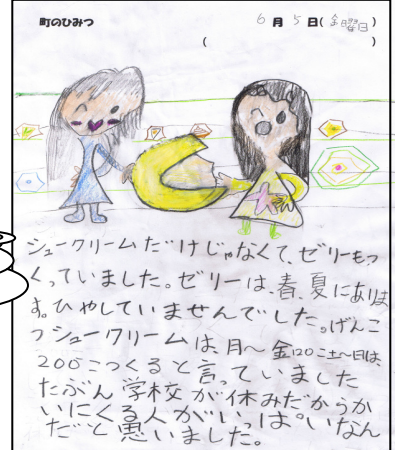 町のひみつ 6月5日(金曜日)
( )
シュークリームだけじゃなくて、ゼリーもつ
くっていました。ゼリーは、春、夏にありま
す。ひやしていませんでした。げんこ
つシュークリームは、月〜金120こ土〜日は、
200こつくると言っていました
たぶん学校が休みだからか
いにくる人がいっぱいなん
だと思いました。